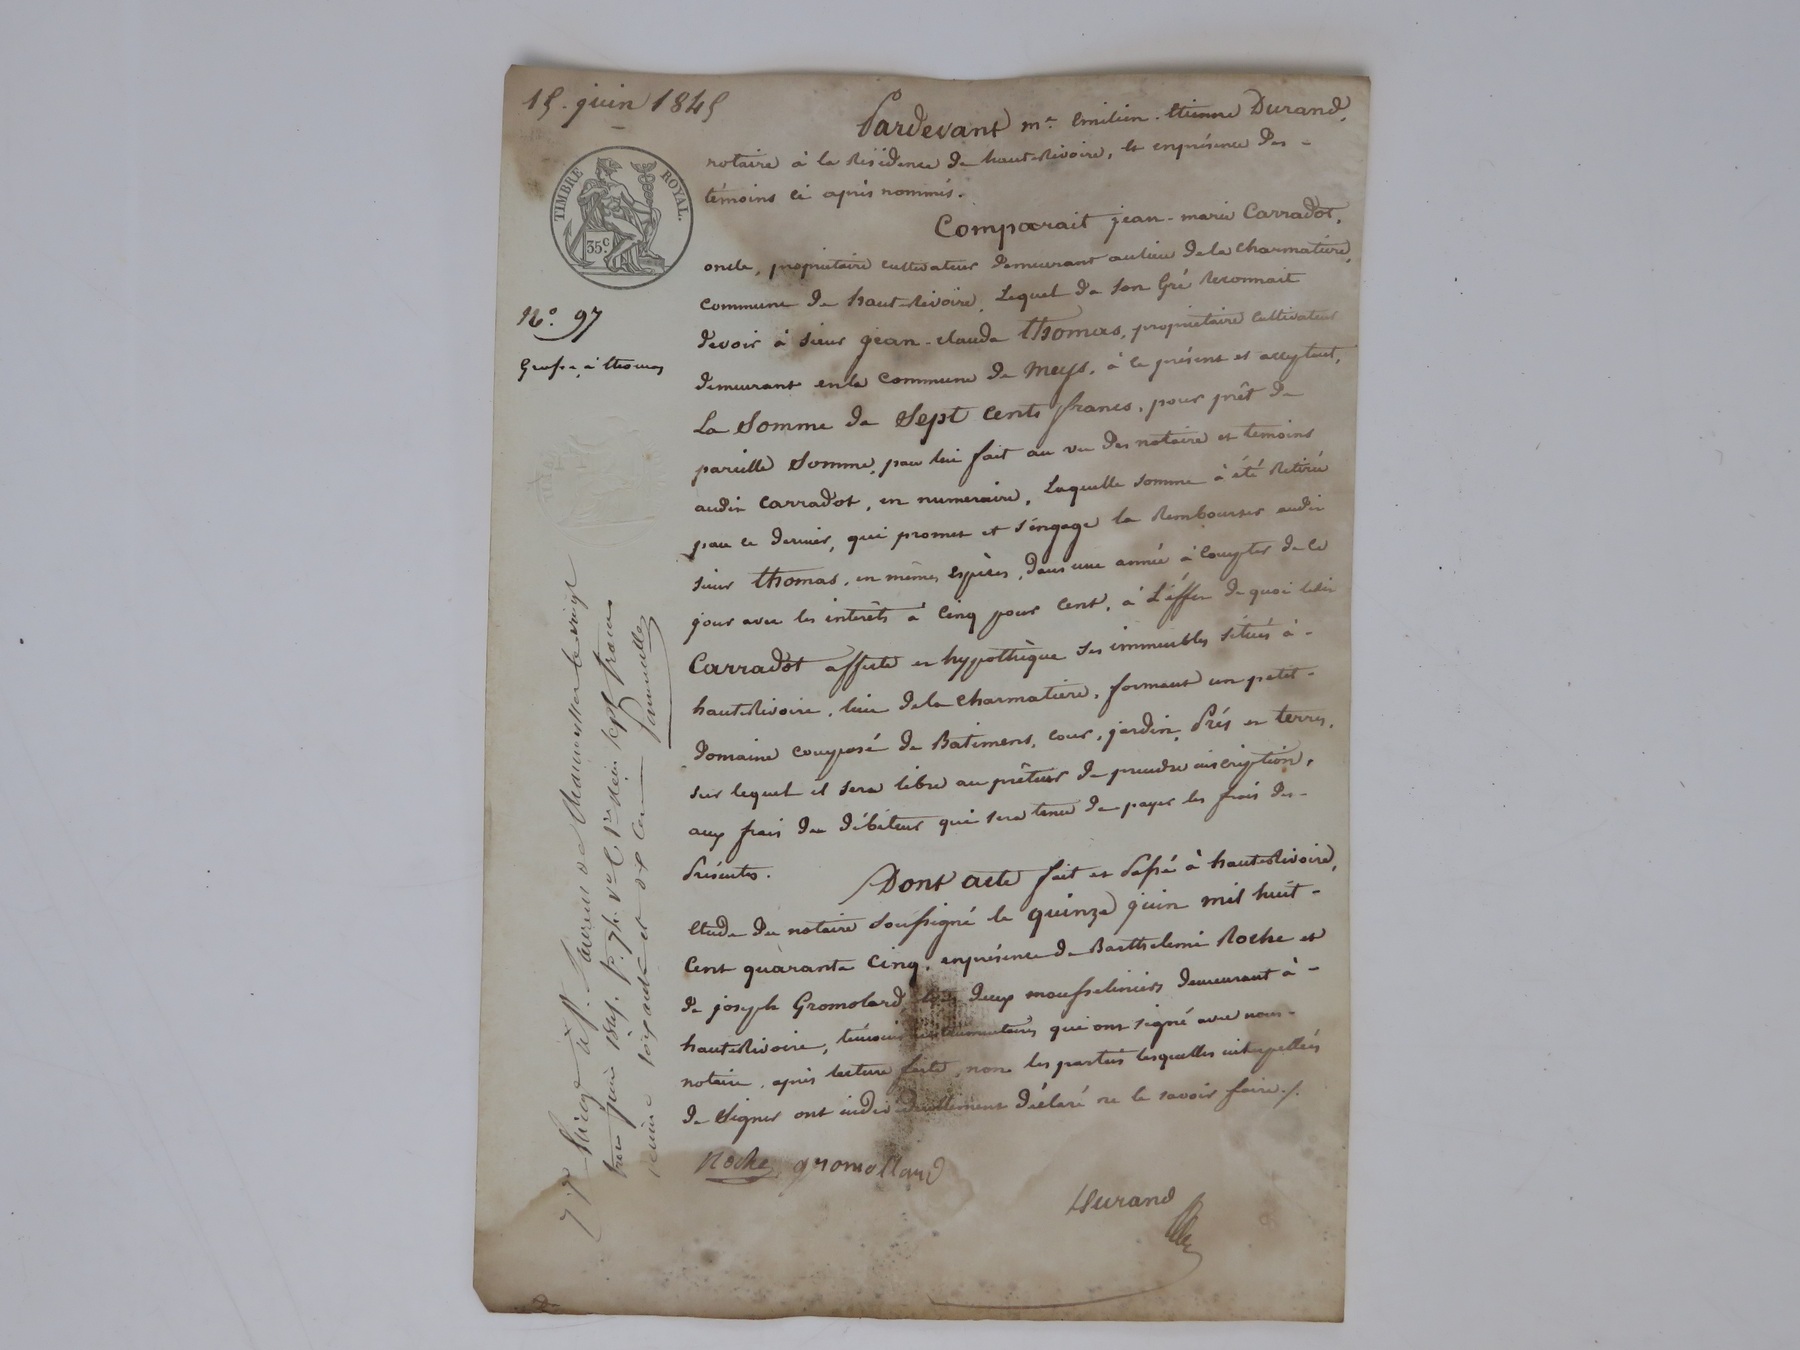 15. juin 1845
TIMBRE ROYAL.
35 c.
No. 97
Grosse à thomas
Pardevant me. Emilien-Etienne Durand,
notaire à la Résidence de haute-Rivoire, et en présence des-
témoins ci après nommés.
Comparait jean-marie Carradot,
oncle, propriétaire cultivateur demeurant au lieu de la Charmatière,
commune de haute-Rivoire. Lequel de son Gré Reconnait
devoir à sieur jean-claude Thomas, propriétaire Cultivateur
demeurant en la Commune de Meys, à ce présent et acceptant,
La Somme de Sept cents francs, pour prêt de
pareille Somme, par lui fait au vu des notaire et temoins
audit Carradot, en numeraire, Laquelle somme à été Retirée
par ce dernier, qui promet et s'engage la Rembourser audit
sieur Thomas, en mêmes espèces, dans une année à Compter de ce
jour avec les intérêts à Cinq pour Cent, à L'éffet de quoi ledit
Carradot affecte en hypothèque ses immeubles situés à-
haute-Rivoire, lieu de la Charmatière, formant un petit-
domaine composé de Batimens, Cour, jardin, Prés et terres,
sur lequel il sera libre au prêteur de prendre inscription,
aux frais du débiteur qui sera tenu de payer les frais des-
Présentes.
Dont acte fait et Passé à haute-Rivoire,
étude du notaire Soussigné le quinze juin mil huit-
Cent quarante Cinq, en présence de Barthelemi Roche et
de joseph Gromolard deux mousseliniers demeurant à-
haute-Rivoire, témoins instrumentaires qui ont signé avec nous-
notaire, après lecture faite, non les parties lesquelles interpellées
de Signer ont individuellement déclaré ne le savoir faire./.
Roche gromollard
Durand
juin 1845. sept francs